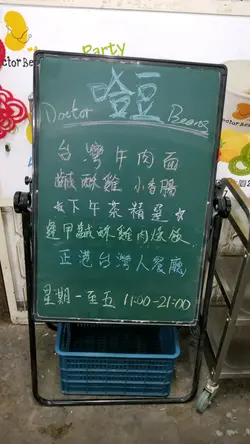 Party
哈豆
Doctor Beans
台灣牛肉面
鹹酥雞 小香腸
☆下午茶精選☆
逢甲鹹酥雞肉燥飯
正港台灣人餐廳
星期一至五 11:00-21:00